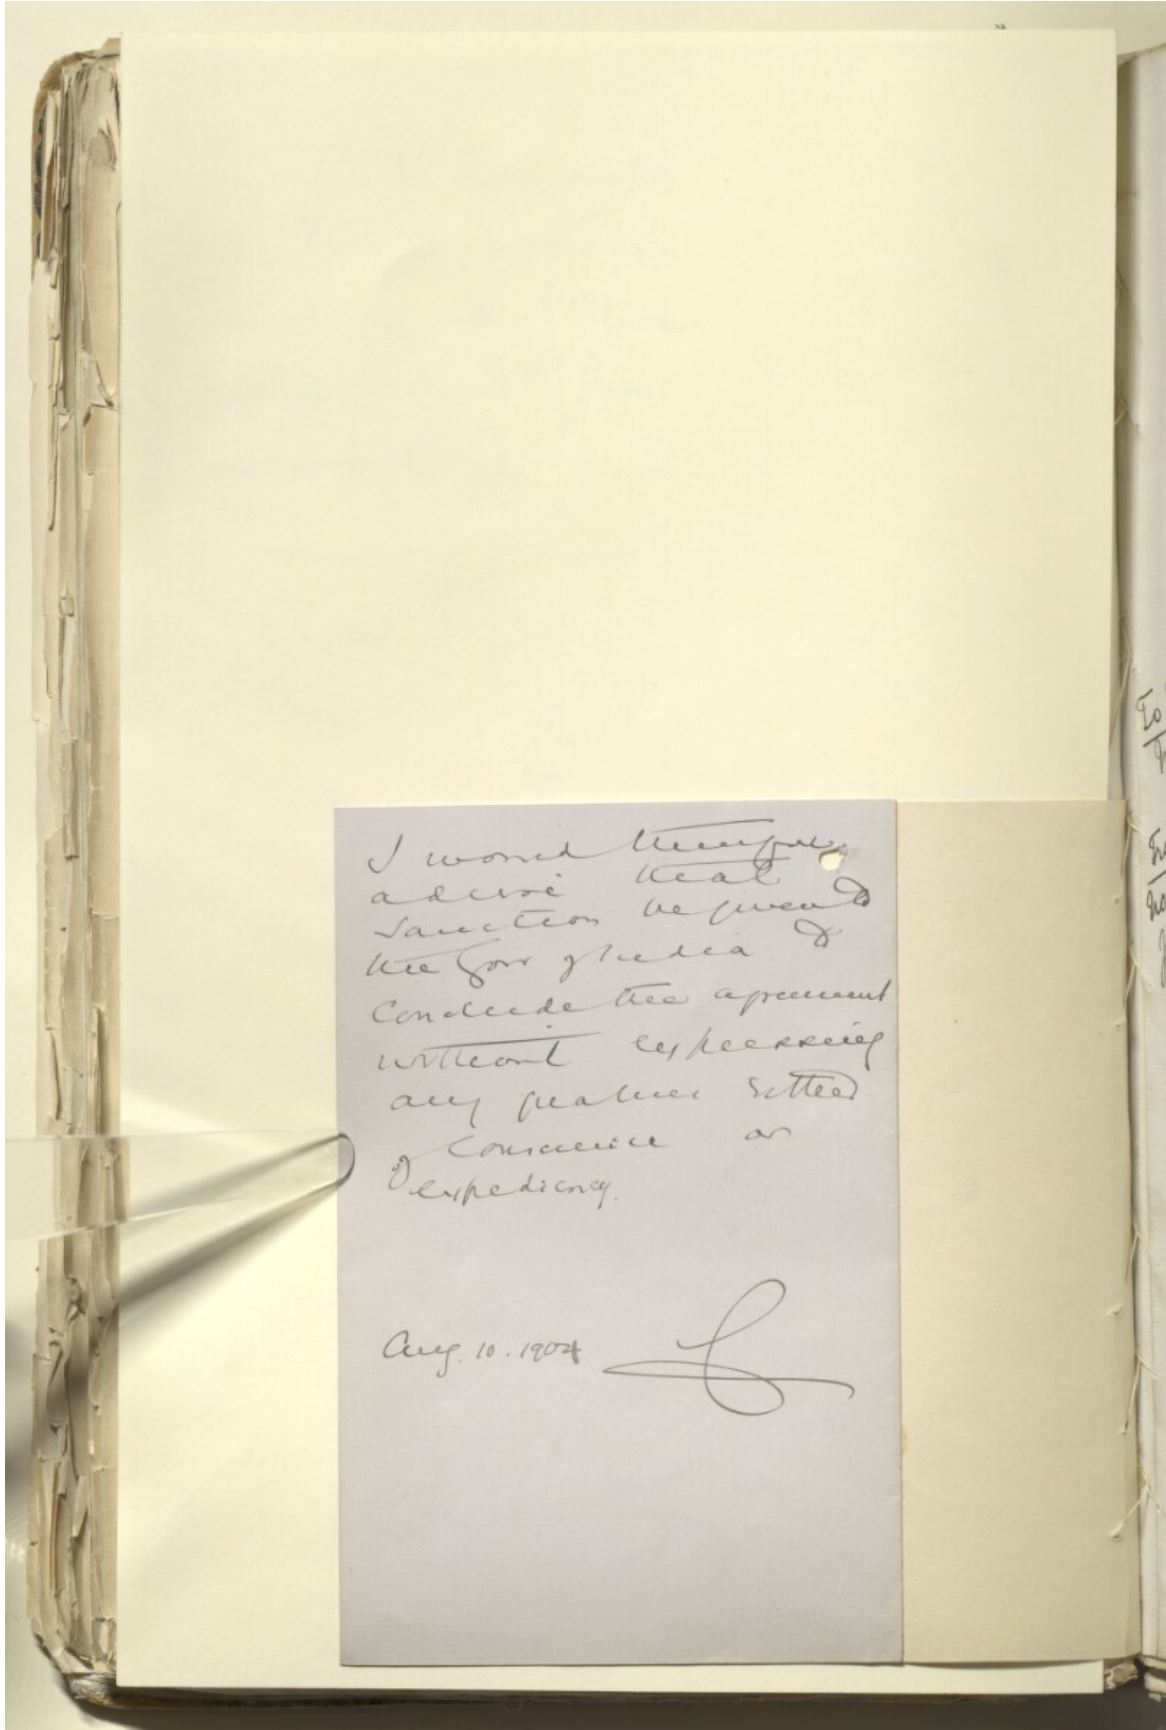 I would therefore
advise that
sanction be given to
the Gov of India to
conclude the agreement
without expressing
any qualms either
of conscience or
expediency.
Aug. 10. 1904
To